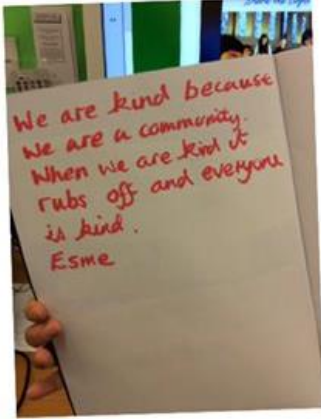 We are kind because
we are a community.
When we are kind it
rubs off and everyone
is kind.
Esme